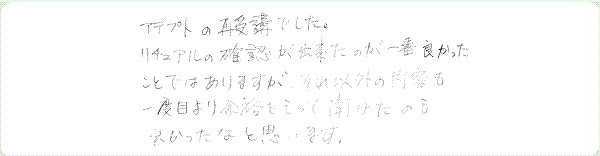 アデプトの再受講でした。
リチュアルの確認が出来たのが一番良かった
ことではありますが、それ以外の内容も
一度目より余裕をもって聞けたのも
良かったなと思います。